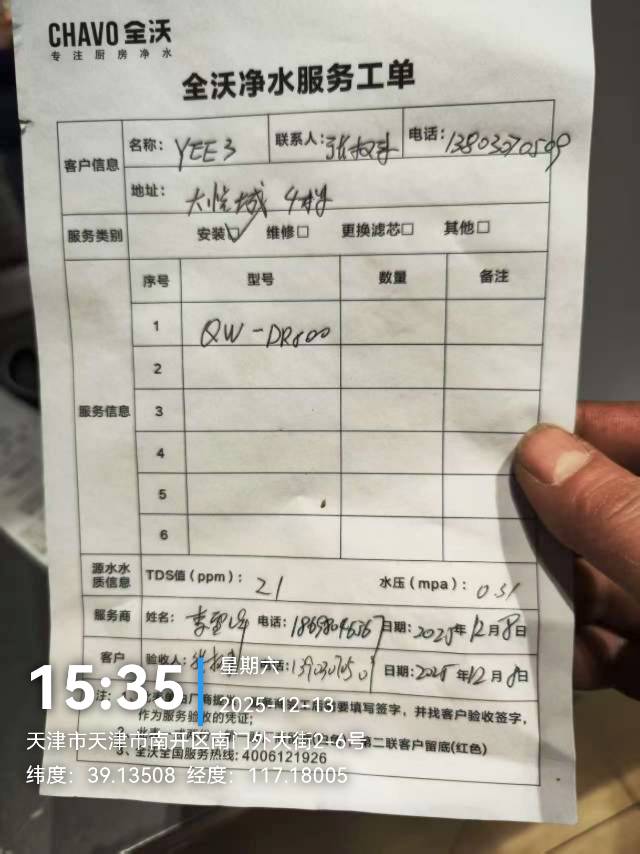 CHAVO 全沃
专注厨房净水
全沃净水服务工单
客户信息 名称: YEE3 联系人: 电话:
地址: 大悦城 4楼
服务类别 安装☑ 维修□ 更换滤芯□ 其他□
服务信息 序号 型号 数量 备注
1 QW-DR800
2
3
4
5
6
源水水质信息 TDS值(ppm): 21 水压(mpa):
服务商 姓名: 电话: 日期: 2025年12月8日
客户 验收人: 日期: 2025年12月8日
作为服务验收的凭证;
第二联客户留底(红色)
3、全沃全国服务热线: 4006121926
15:35
星期六
2025-12-13
天津市天津市南开区南门外大街2+6号
纬度: 39.13508 经度: 117.18005